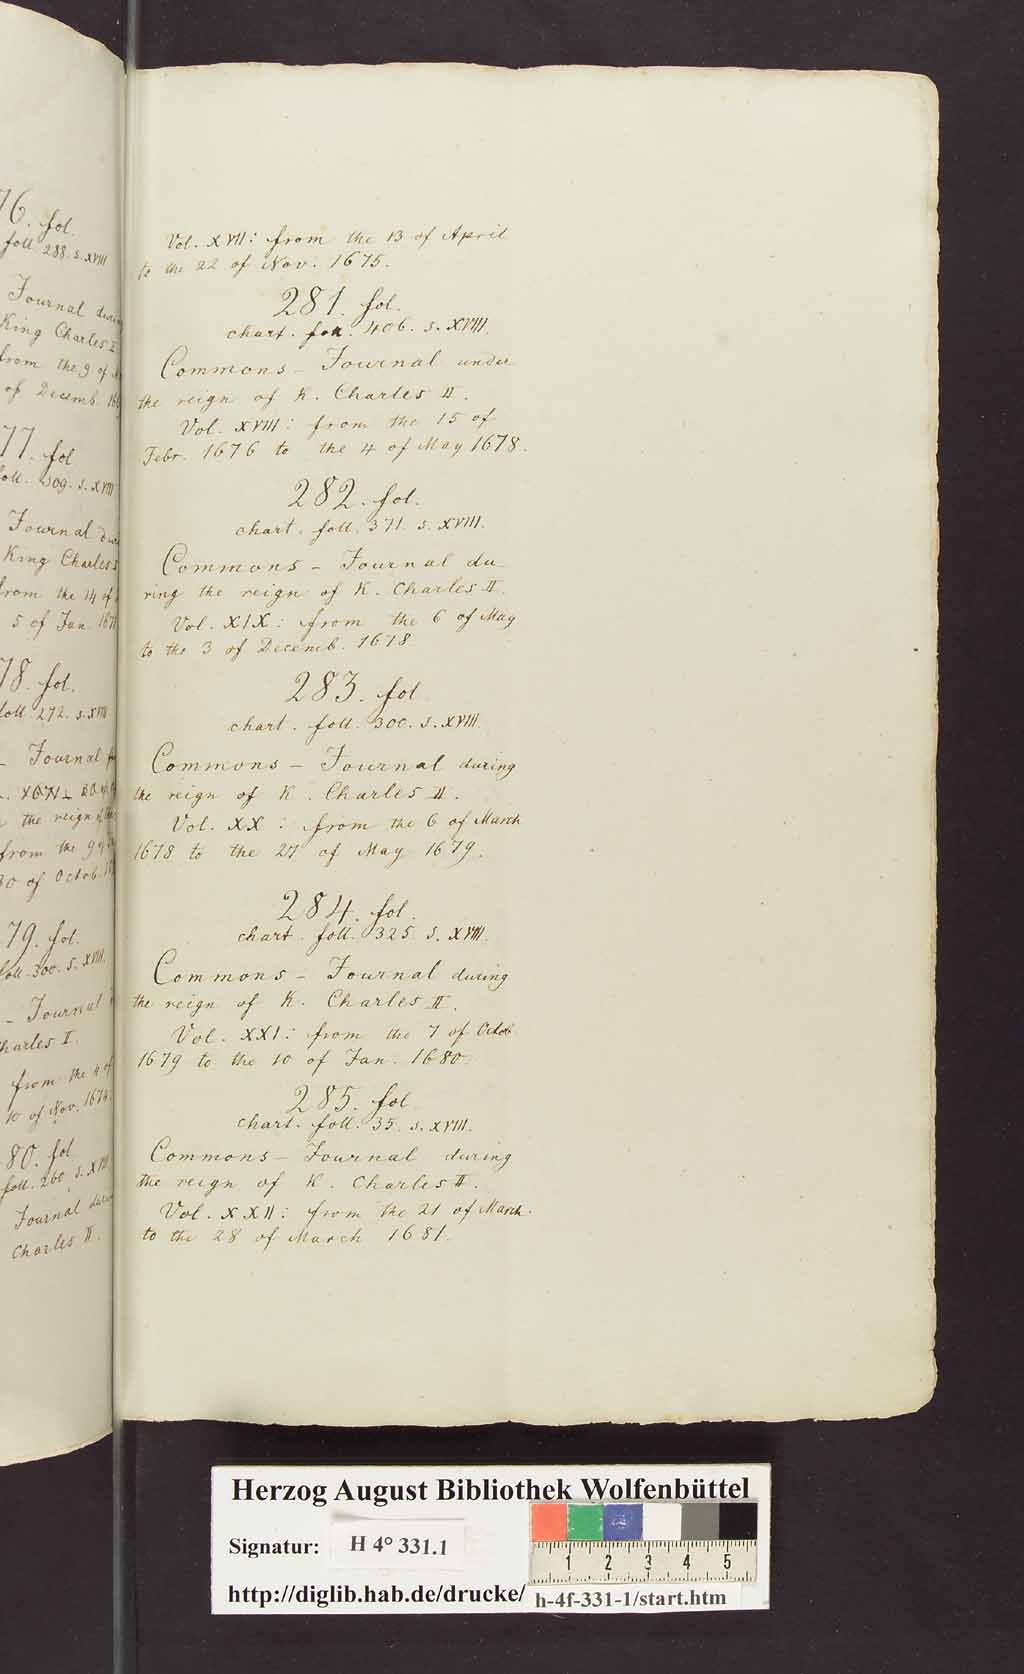 76. fol.
foll 288. s. XVIII
Journal
King Charles
from the 9 of
of Decemb.
77. fol
foll. 309. s. XVIII
Journal
King Charles
from the 14 of
5 of Jan.
78. fol.
foll. 272. s. XVIII
– Journal
the reign
from the 9
30 of Octob.
79. fol.
foll. 300. s. XVIII.
– Journal
Charles I.
from the 4 of
10 of Nov. 1674.
80. fol
foll. 260. s. XVIII
Journal
Charles II.
Vol. XVII: from the 13 of April
to the 22 of Nov. 1675.
281. fol.
chart. 406. s. XVIII.
Commons – Journal under
the reign of K. Charles II.
Vol. XVIII: from the 15 of
Febr. 1676 to the 4 of May 1678.
282. fol.
chart. foll. 371. s. XVIII.
Commons – Journal du-
ring the reign of K. Charles II.
Vol. XIX: from the 6 of May
to the 3 of Decemb. 1678
283. fol
chart. foll. 300. s. XVIII.
Commons – Journal during
the reign of K. Charles II.
Vol. XX: from the 6 of March
1678 to the 27 of May 1679.
284. fol.
chart. foll. 325. s. XVIII.
Commons – Journal during
the reign of K. Charles II.
Vol. XXI: from the 7 of Octob
1679 to the 10 of Jan. 1680.
285. fol
chart. foll. 35. s. XVIII.
Commons – Journal during
the reign of K. Charles II.
Vol. XXII: from the 21 of March.
to the 28 of March 1681.
Herzog August Bibliothek Wolfenbüttel
Signatur: H 4° 331.1
1 2 3 4 5
http://diglib.hab.de/drucke/ h-4f-331-1/start.htm